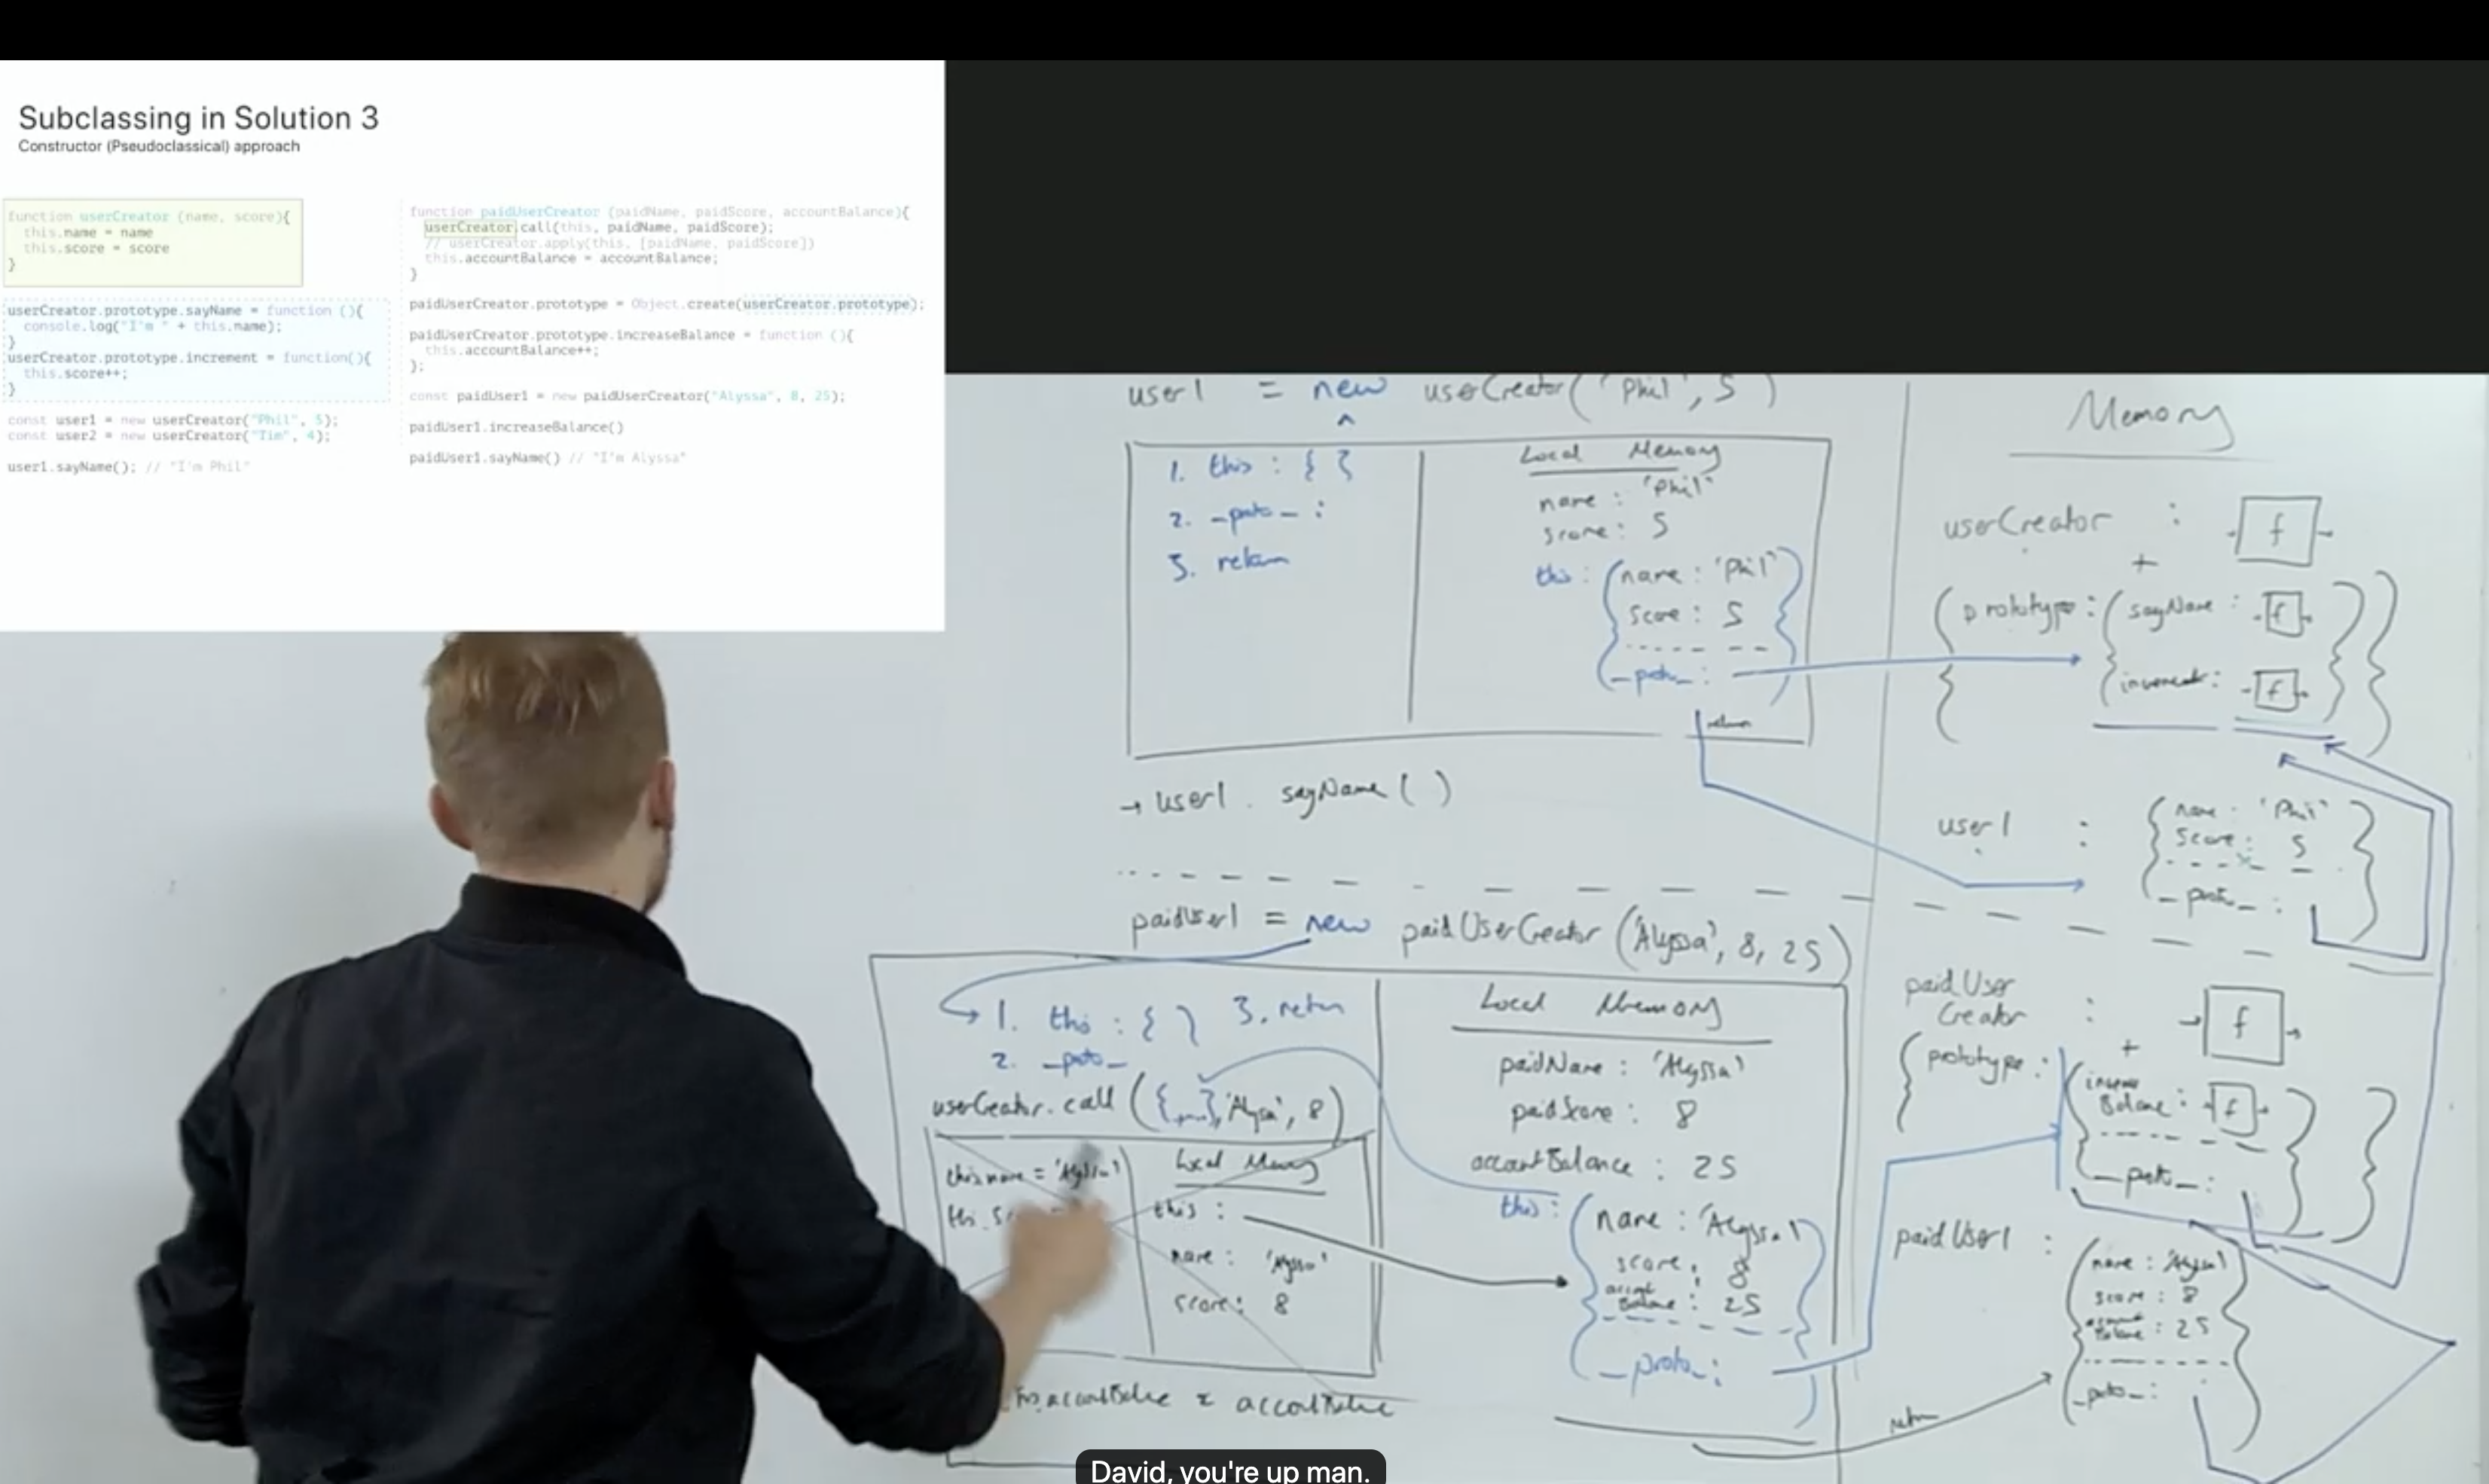 Subclassing in Solution 3
Constructor (Pseudoclassical) approach
function userCreator (name, score){
this.name = name
this.score = score
}
userCreator.prototype.sayName = function (){
console.log("I'm " + this.name);
}
userCreator.prototype.increment = function(){
this.score++;
}
const user1 = new userCreator("Phil", 5);
const user2 = new userCreator("Tim", 4);
user1.sayName(); // "I'm Phil"
function paidUserCreator (paidName, paidScore, accountBalance){
userCreator.call(this, paidName, paidScore);
// userCreator.apply(this, [paidName, paidScore])
this.accountBalance = accountBalance;
}
paidUserCreator.prototype = Object.create(userCreator.prototype);
paidUserCreator.prototype.increaseBalance = function (){
this.accountBalance++;
};
const paidUser1 = new paidUserCreator("Alyssa", 8, 25);
paidUser1.increaseBalance()
paidUser1.sayName() // "I'm Alyssa"
user1 = new userCreator('Phil', 5)
1. this : { }
2. _proto_ :
3. return
Local Memory
name : 'Phil'
score : 5
this : { name : 'Phil'
score : 5
_proto_ :
return
→ user1 . sayName ( )
paidUser1 = new paidUserCreator ('Alyssa', 8, 25)
1. this : { } 3. return
2. _proto_
userCreator.call ({ }, 'Alyssa', 8)
this.name = 'Alyssa'
Local Memory
this :
name : 'Alyssa'
score : 8
this.accountBalance = accountBalance
Local Memory
paidName : 'Alyssa'
paidScore : 8
accountBalance : 25
this : { name : 'Alyssa'
score : 8
account Balance : 25
_proto_ :
return
Memory
userCreator : f
+
{ prototype : { sayName : f
increment : f
user1 : { name : 'Phil'
score : 5
_proto_ :
paid User Creator : f
+
{ prototype : { increase Balance : f
_proto_ :
paidUser1 : { name : 'Alyssa'
score : 8
account Balance : 25
_proto_ :
David, you're up man.